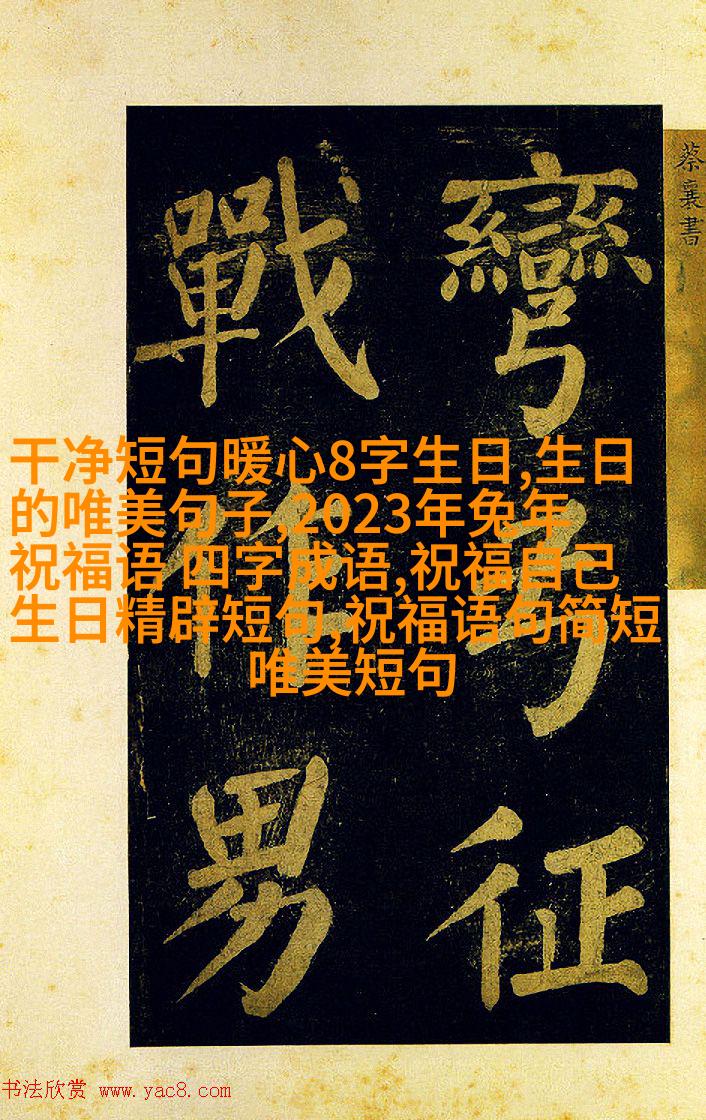 蔡襄書
彎弓征
戰作男
干净短句暖心8字生日,生日
的唯美句子,2023年兔年
祝福语 四字成语,祝福自己
生日精辟短句,祝福语句简短
唯美短句
书法欣赏 www.yac8.com